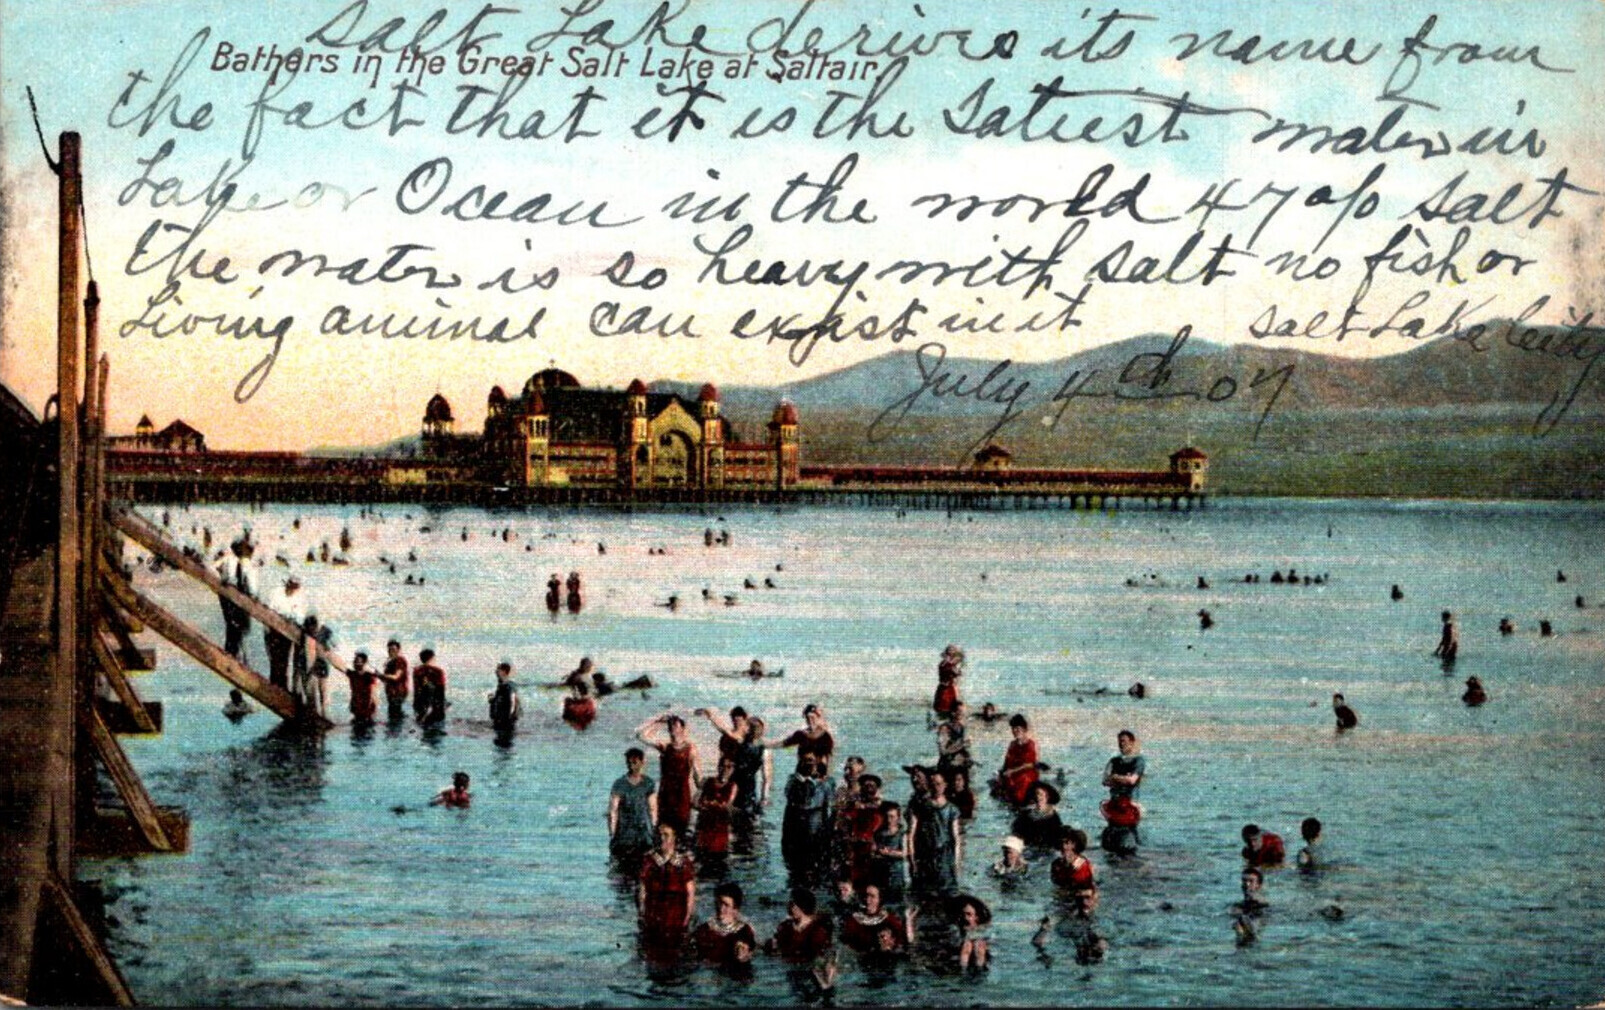 Salt Lake derives its name from
Bathers in the Great Salt Lake at Saltair.
the fact that it is the Satiest water in
Lake or Ocean in the world 47 o/o Salt
the water is so heavy with Salt no fish or
Living animal can exist in it
Salt Lake City
July 4th 07